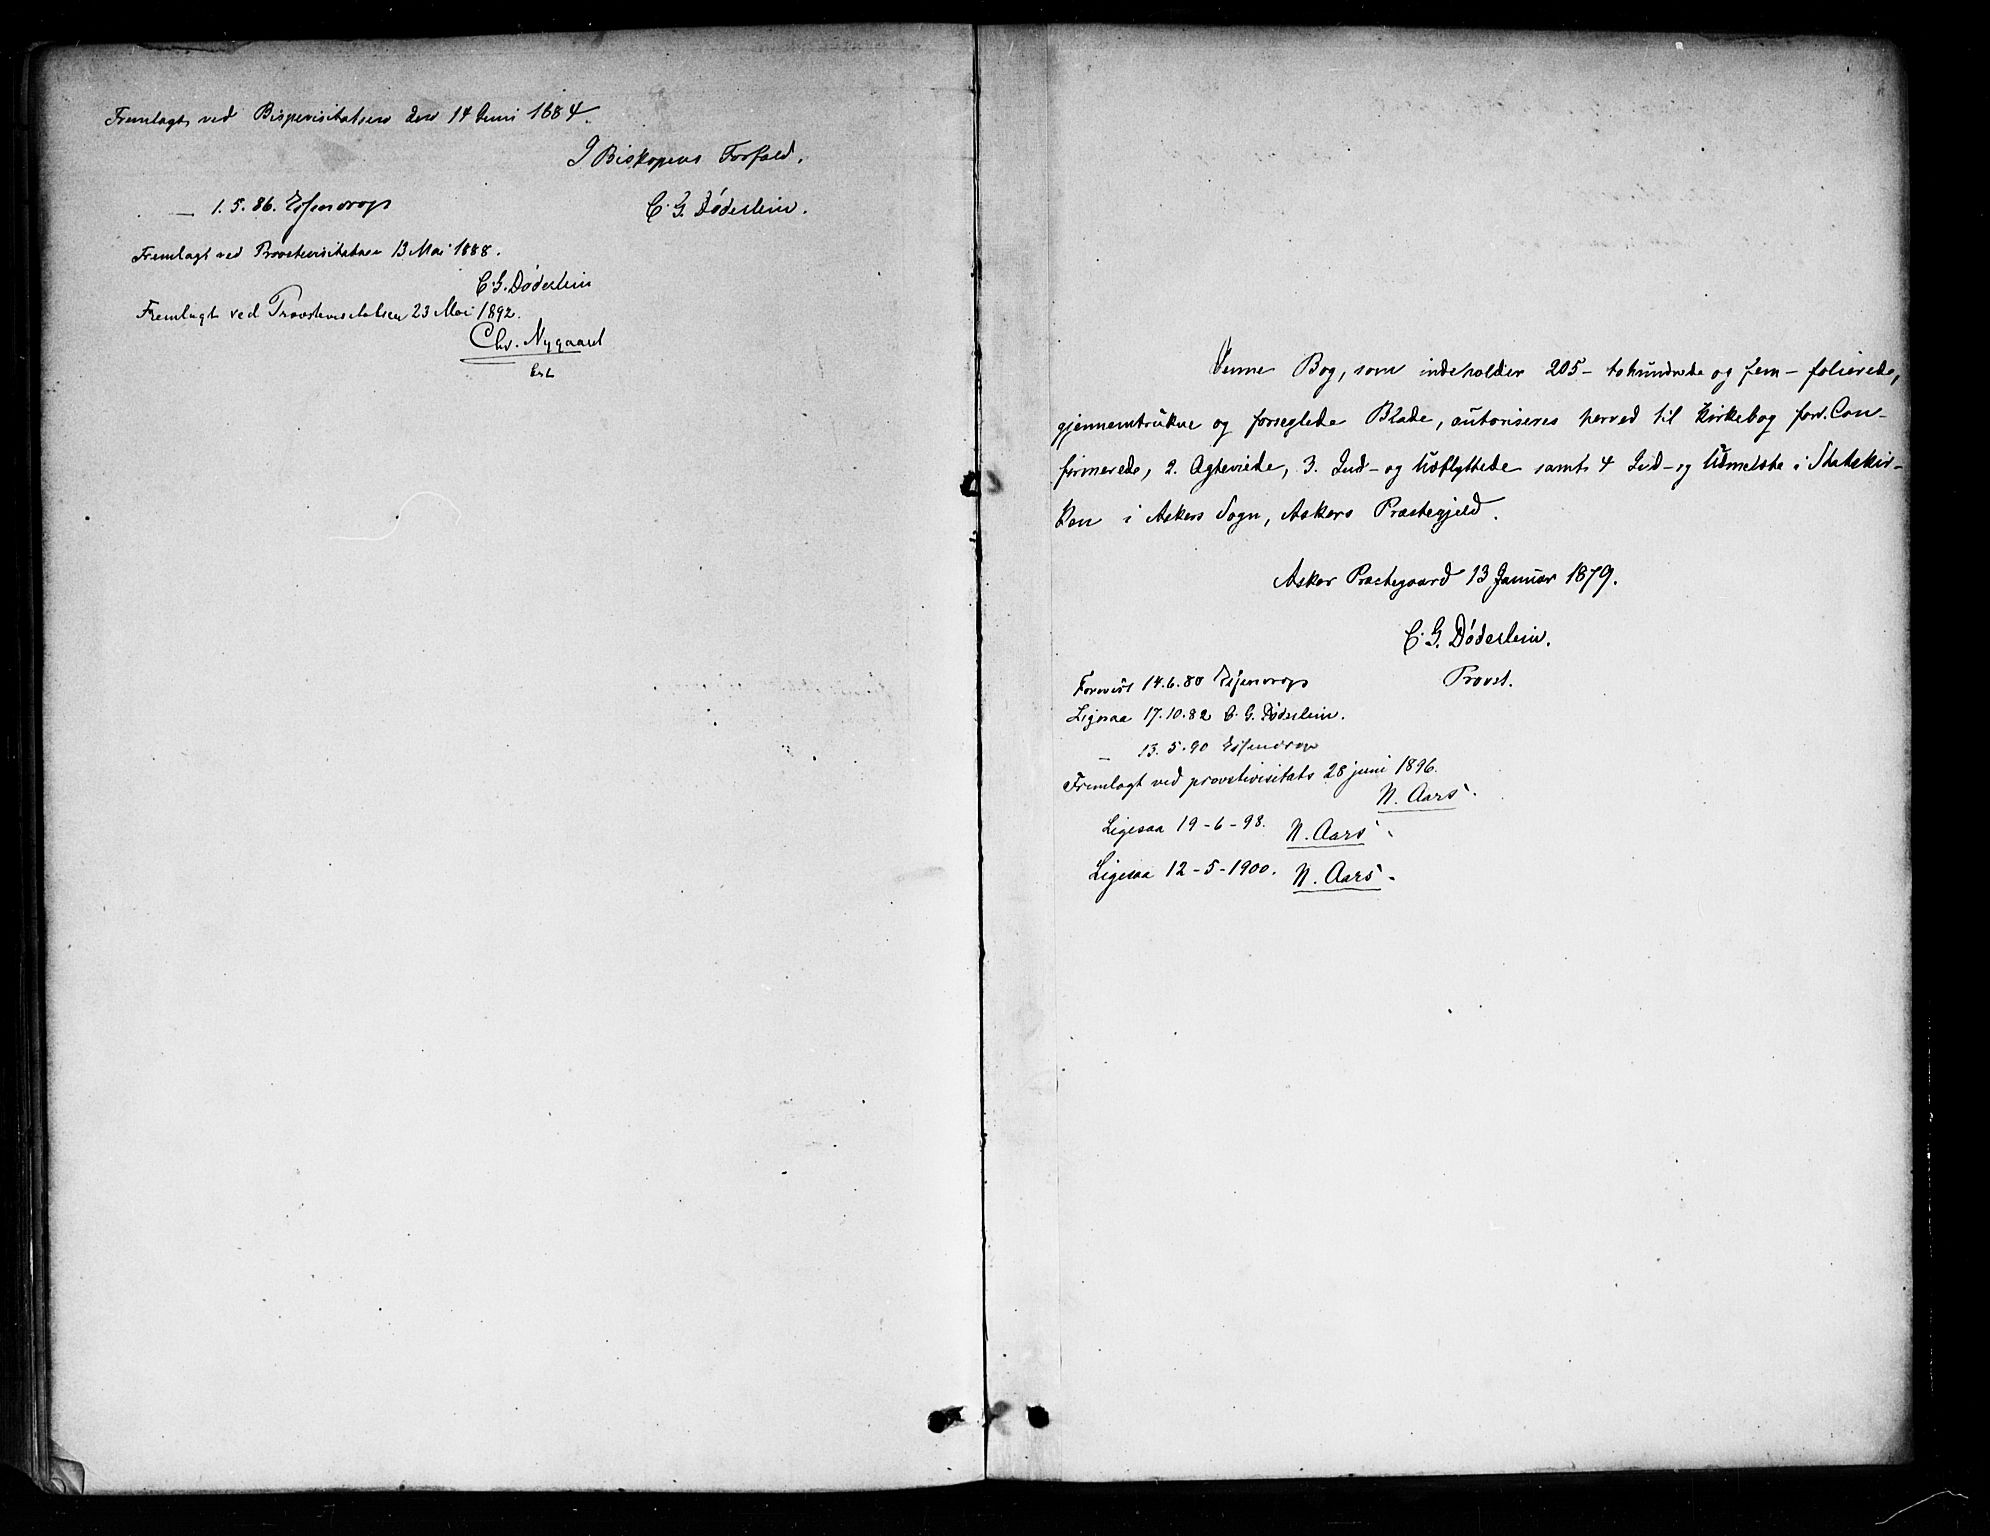 Fremlagt ved Bispevisitatsen den 14 Juni 1884.
I Biskopens Forfald.
C. G. Døderlein.
— 1.5.86. Essendrop
Fremlagt ved Provstevisitatsen 13 Mai 1888.
C. G. Døderlein
Fremlagt ved Provstevisitatsen 23 Mai 1892.
Chr. Nygaard
cst
Denne Bog, som indeholder 205 - tohundrede og fem - folierede,
gjennemtrukne og forseglede Blade, autoriseres herved til Kirkebog for 1. Con-
firmerede, 2. Ægteviede, 3. Ind- og Udflyttede samt 4 Ind- og Udmeldte i Statskir-
ken i Askers Sogn, Askers Præstegjeld.
Asker Præstegaard 13 Januar 1879.
C. G. Døderlein.
Provst.
Forevist 14.6.80 Essendrop
Ligesaa 17.10.82 C. G. Døderlein.
— 13.5.90 Essendrop
Fremlagt ved provstevisitats 28 juni 1896.
N. Aars.
Ligesaa 19-6-98. N. Aars
Ligesaa 12-5-1900. N. Aars.